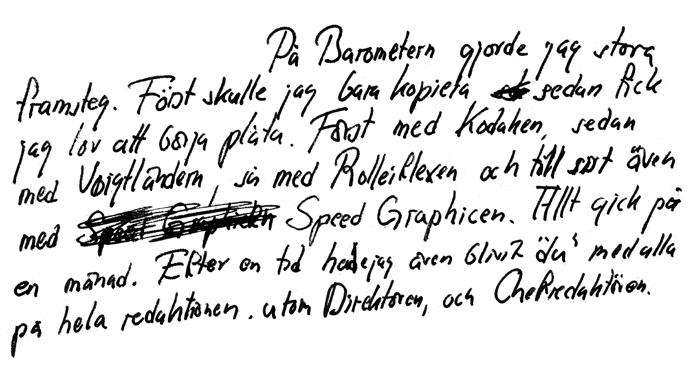 På Barometern gjorde jag stora
framsteg. Först skulle jag bara kopiera sedan fick
jag lov att börja plåta. Först med Kodaken, sedan
med Voigtländern, så med Rolleiflexen och till sist även
med Speed Graphicen. Allt gick på
en månad. Efter en tid hade jag även blivit "du" med alla
på hela redaktionen. utom Direktören, och Chefredaktören.